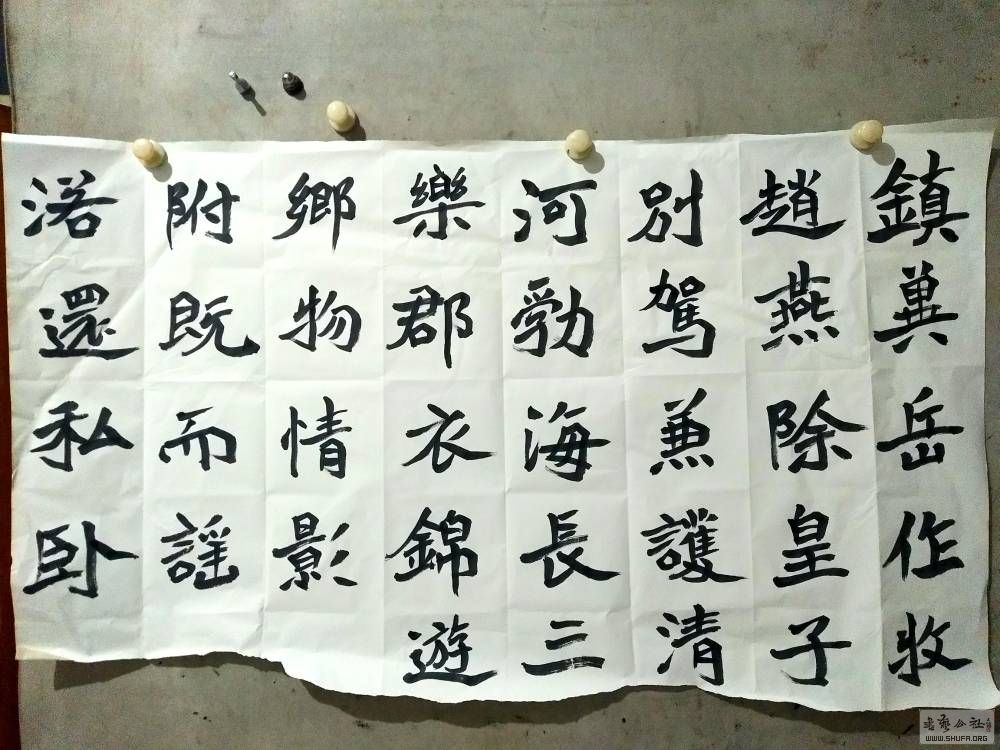 鎮冀岳作牧
趙燕除皇子
別駕兼護清
河勃海長三
樂郡衣錦遊
鄉物情影
附既而謠
渃還私卧
书艺公社
WWW.SHUFA.ORG